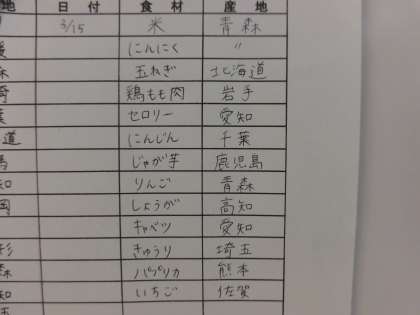 地 日付 食材 産地
3/15 米 青森
にんにく 〃
玉ねぎ 北海道
崎 鶏もも肉 岩手
葉 セロリー 愛知
道 にんじん 千葉
馬 じゃが芋 鹿児島
知 りんご 青森
岡 しょうが 高知
キャベツ 愛知
杉 きゅうり 埼玉
森 パプリカ 熊本
知 いちご 佐賀